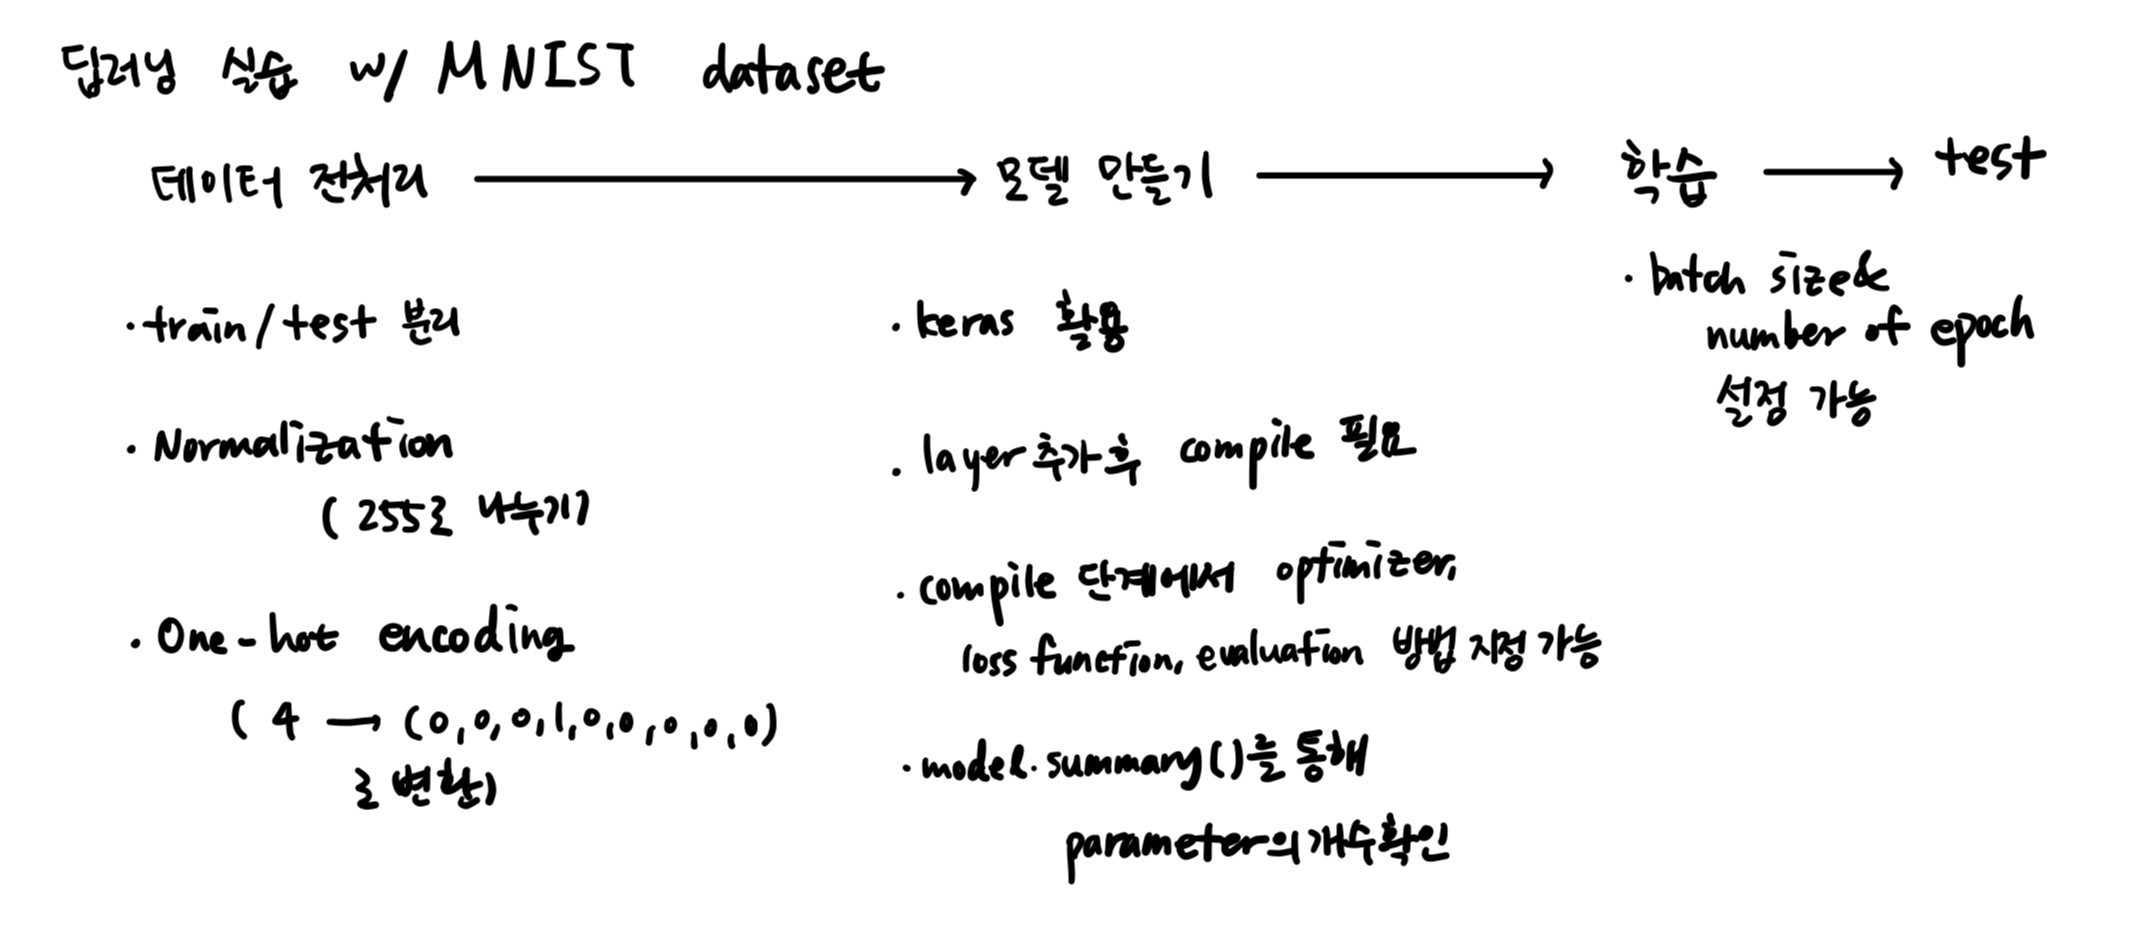 딥러닝 실습 w/ MNIST dataset
데이터 전처리 → 모델 만들기 → 학습 → test
· train/test 분리
· Normalization
( 255로 나누기)
· One-hot encoding
( 4 → (0,0,0,1,0,0,0,0,0)
로 변환)
· keras 활용
· layer 추가 후 compile 필요
· compile 단계에서 optimizer,
loss function, evaluation 방법 지정 가능
· model.summary()를 통해
parameter의 개수확인
· batch size &
number of epoch
설정 가능